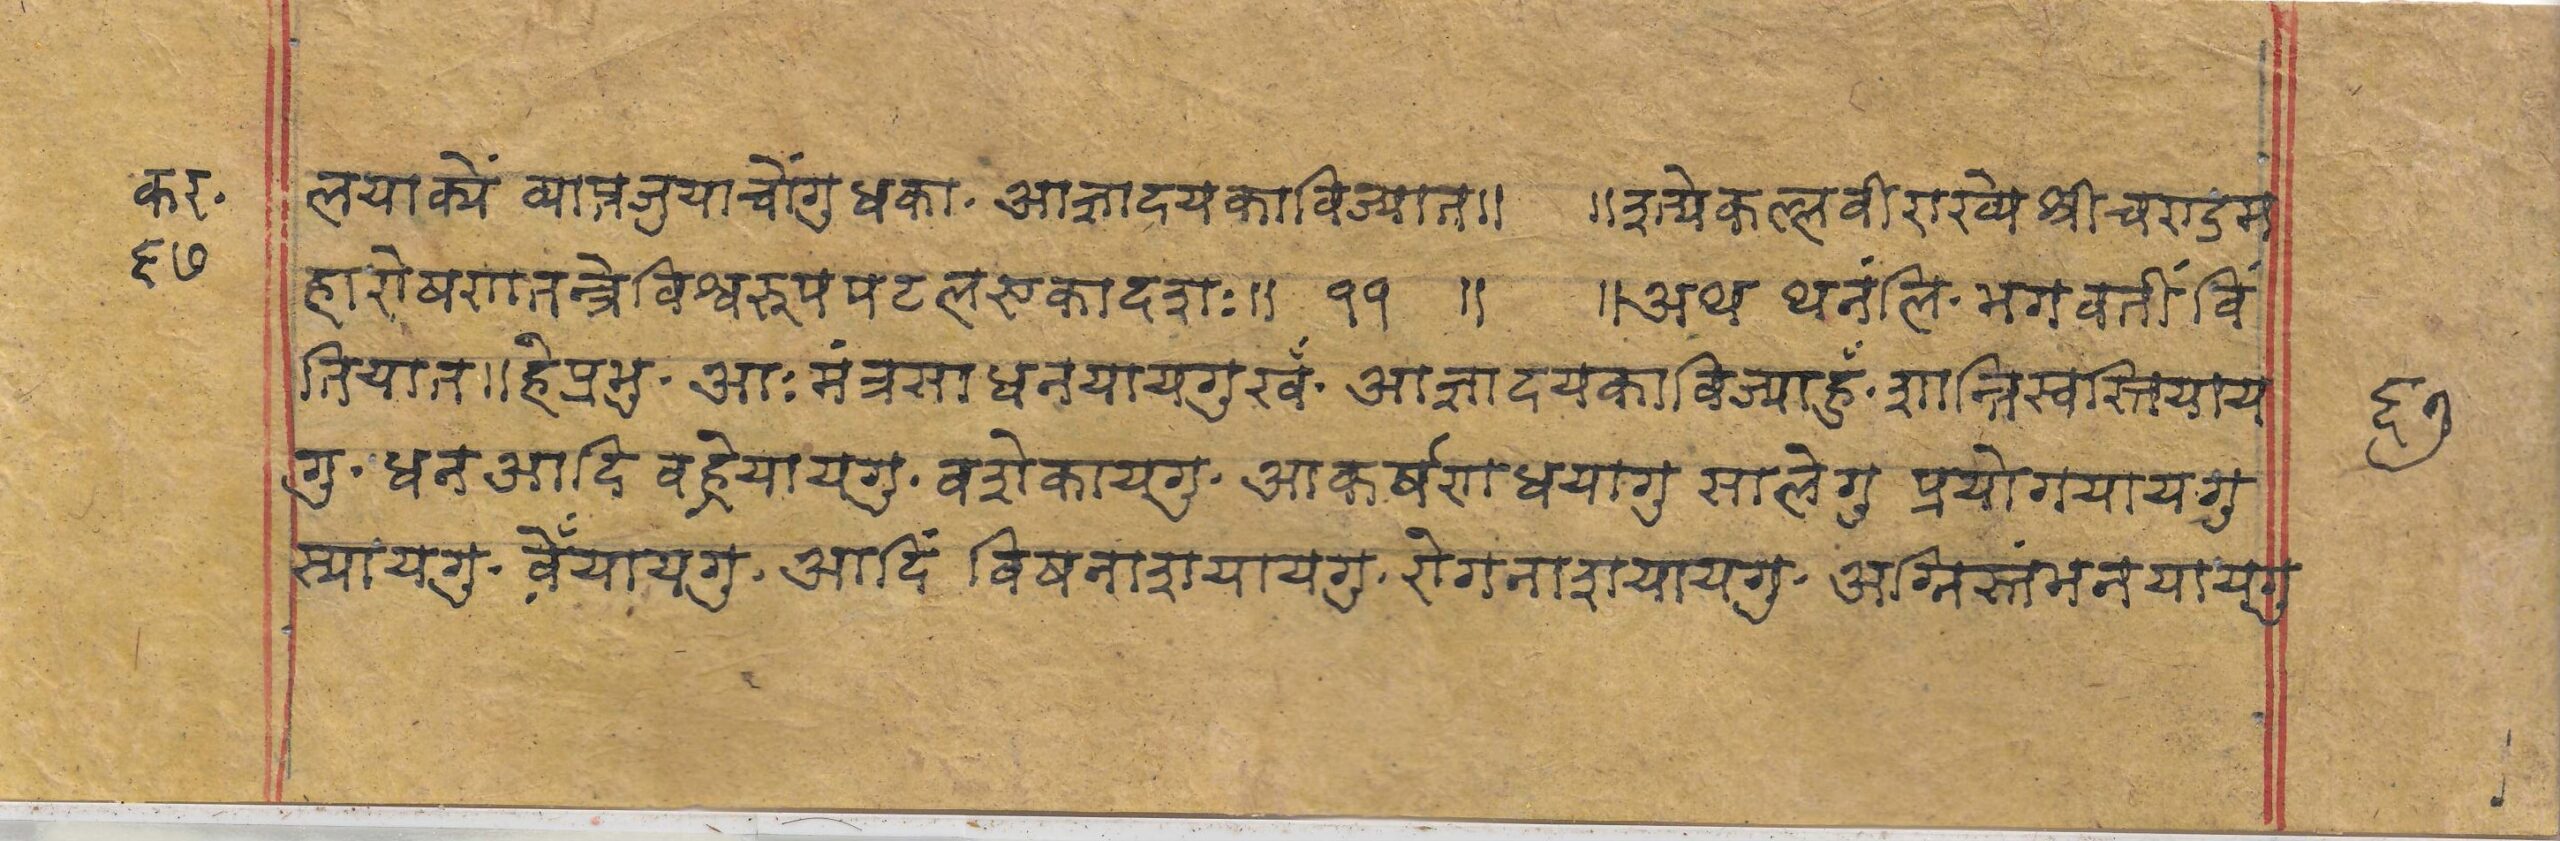 कर. लयाक्यें व्याप्तजुयाच्वोंगु धका. आज्ञादयकाविज्यात॥ ॥इत्येकल्लवीराख्ये श्रीचण्डम
६७ हारोषणतन्त्रे विश्वरूपपटल एकादशः॥ ११ ॥ ॥अथ थनंलि. भगवतीं विं
तियात॥हेप्रभु. आः मंत्रसाधनयायगु खँ. आज्ञादयकाविज्याहुँ. शान्तिस्वस्तियाय ६७
गु. धनआदि वह्रेयायगु. वशेकायगु. आकर्षणधयागु सालेगु प्रयोगयायगु
स्यायगु. वेँयायगु. आदिं विषनाशयायगु. रोगनाशयायगु. अग्निस्तंभनयायगु